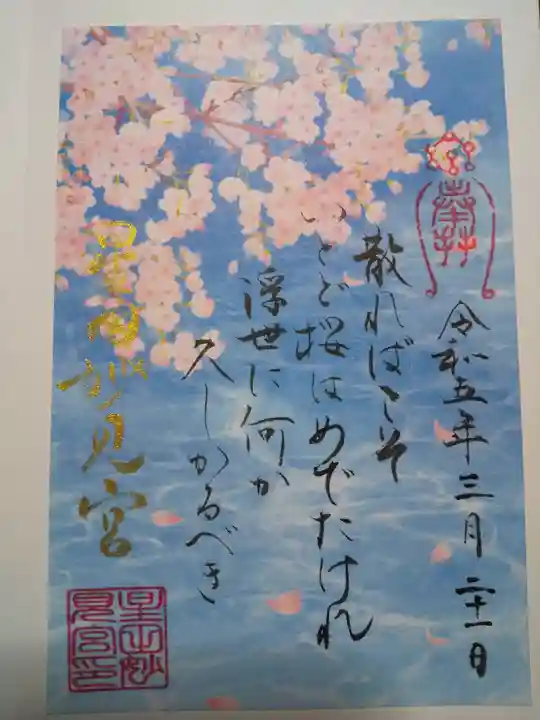 奉拝
令和五年三月二十一日
散ればこそ
いとど桜はめでたけれ
浮世に何か
久しかるべき
星田妙見宮